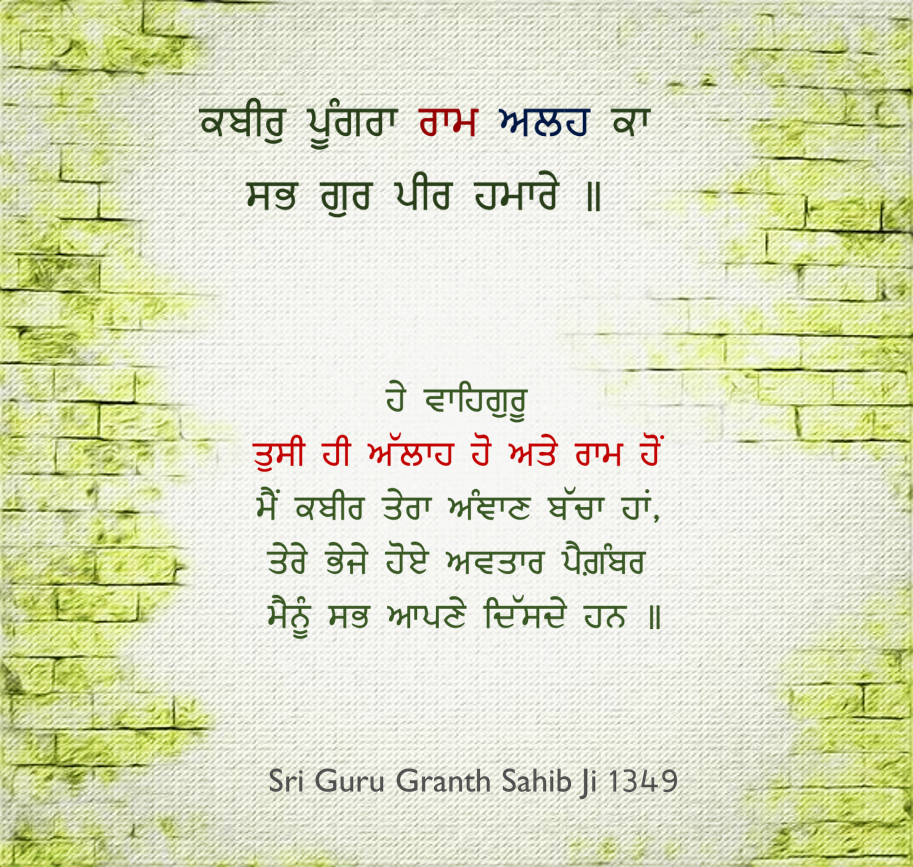 ਕਬੀਰੁ ਪੂੰਗਰਾ ਰਾਮ ਅਲਹ ਕਾ
ਸਭ ਗੁਰ ਪੀਰ ਹਮਾਰੇ ॥
ਹੇ ਵਾਹਿਗੁਰੂ
ਤੁਸੀ ਹੀ ਅੱਲਾਹ ਹੋ ਅਤੇ ਰਾਮ ਹੋਂ
ਮੈਂ ਕਬੀਰ ਤੇਰਾ ਅੰਞਾਣ ਬੱਚਾ ਹਾਂ,
ਤੇਰੇ ਭੇਜੇ ਹੋਏ ਅਵਤਾਰ ਪੈਗ਼ੰਬਰ
ਮੈਨੂੰ ਸਭ ਆਪਣੇ ਦਿੱਸਦੇ ਹਨ ॥
Sri Guru Granth Sahib Ji 1349